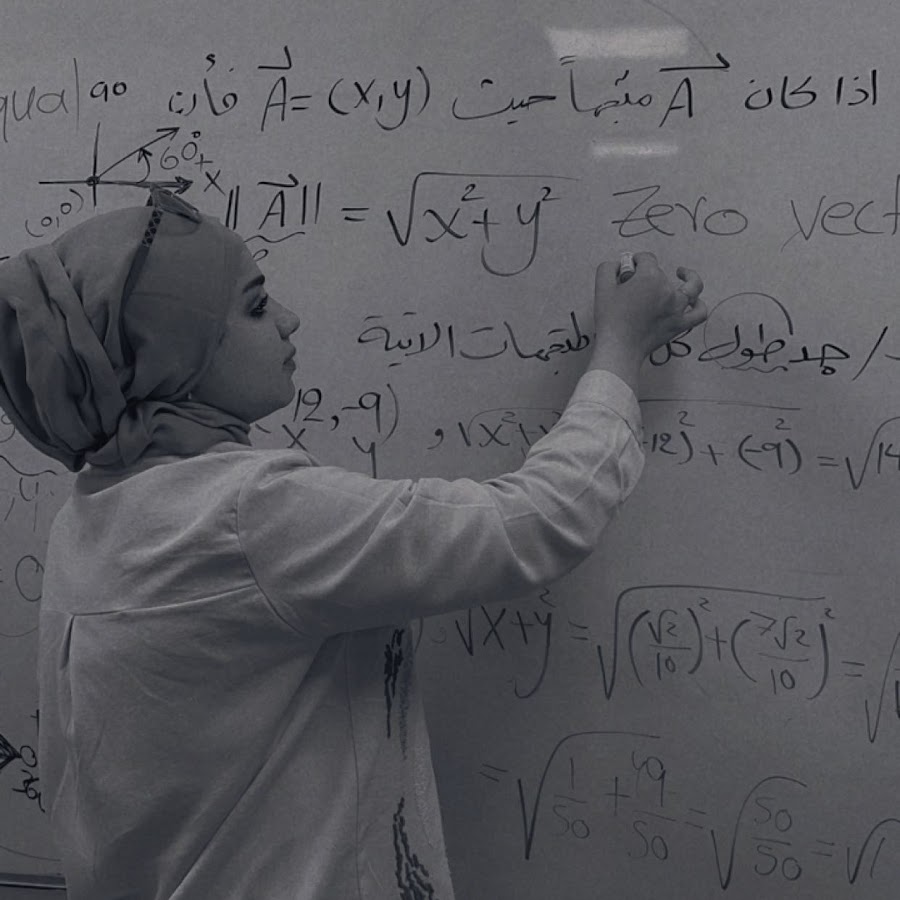 اذا كان A متجهاً حيث A = (x,y) فأن
qual 90
60°
x
(0,0)
||A|| = √x²+y² Zero vect
جد طول كل المتجهات الاتية
12,-9)
x y
, √x²+ 12)²+(-9)² = √14
, √x+y² = √(√2/10)²+(7√2/10)² = √
= √1/50 + 49/50 = √50/50 = √1